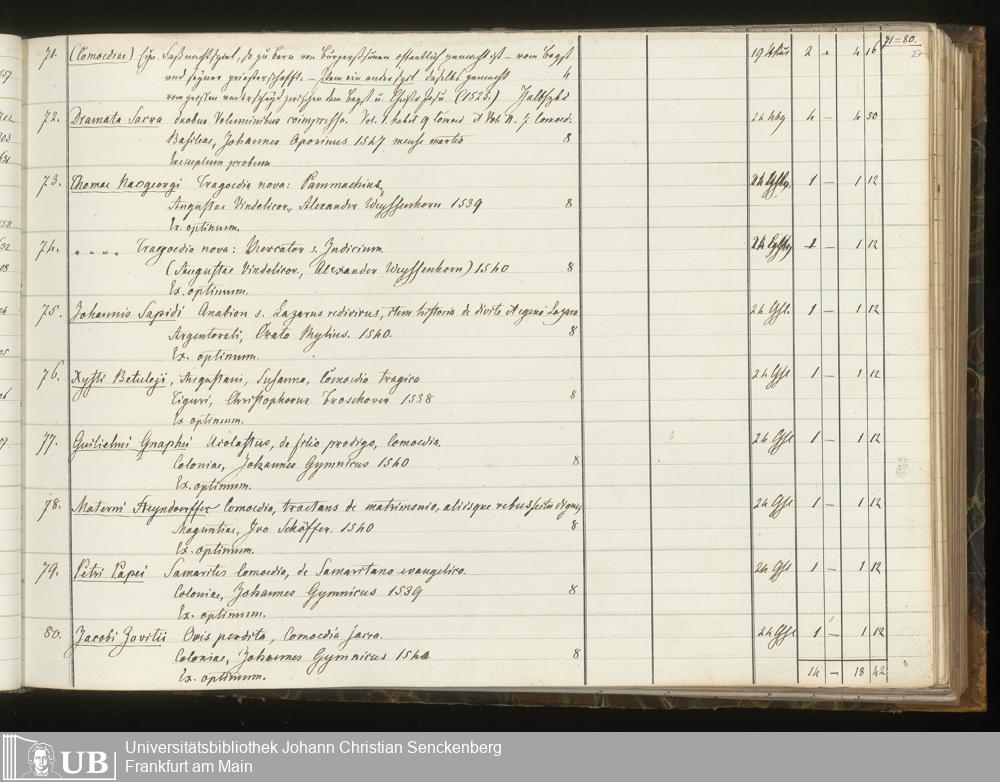 71=80.
71. (Comoediae) Eyn Faßnachtspiel, so zu Bern von Burgerssönen offentlich gemacht ist – vom Bapst 2 4 16
und seyner priesterschafft. – Item ein ander spil daselbs gemacht 4
vom grossen underscheyd zwischen dem Bapst u. Christo Jesu (1525.)
72. Dramata Sacra duobus Voluminibus compressa. 4 – 4 50
Basileae, Johannes Oporinus 1547 mense martio 8
Exemplum probum
73. Thomae Naogeorgi Tragoedia nova: Pammachius, 1 – 1 12
Augustae Vindelicor., Alexander Weyssenhorn 1539 8
Ex. optimum.
74. „ „ „ „ Tragoedia nova: Mercator s. Judicium. 1 – 1 12
(Augustae Vindelicor., Alexander Weyssenhorn) 1540 8
Ex. optimum.
75. Johannis Sapidi Anabion s. Lazarus redivivus, item historia de divite et egeno Lazaro 24 1 – 1 12
Argentorati, Crato Mylius. 1540. 8
Ex. optimum.
76. Xysti Betuleji, Augustani, Susanna, Comoedia tragica 24 1 – 1 12
Tiguri, Christophorus Froschover 1538 8
Ex optimum.
77. Guilielmi Gnaphei Acolastus, de filio prodigo, Comoedia. 24 1 – 1 12
Coloniae, Johannes Gymnicus 1540 8
Ex. optimum.
78. Materni Steyndorffer Comoedia, tractans de matrimonio, aliisque rebus scitu dignis, 24 1 – 1 12
Maguntiae, Ivo Schöffer. 1540 8
Ex. optimum.
79. Petri Papei Samarites Comoedia, de Samaritano evangelico. 24 1 – 1 12
Coloniae, Johannes Gymnicus 1539 8
Ex. optimum.
80. Jacobi Zovitii Ovis perdita, Comoedia sacra. 24 1 – 1 12
Coloniae, Johannes Gymnicus 1540 8
Ex. optimum.
14 – 18 42
UB
Universitätsbibliothek Johann Christian Senckenberg
Frankfurt am Main